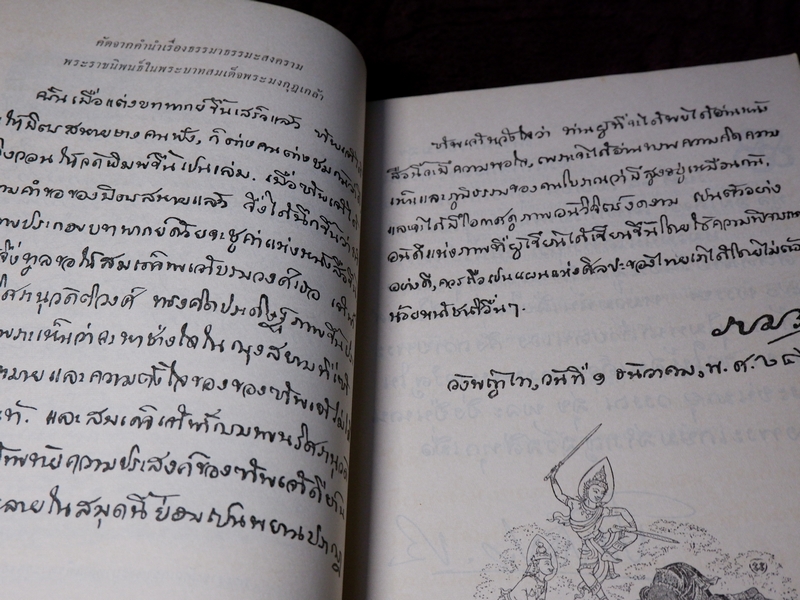 คัดจากคำนำเรื่องธรรมาธรรมะสงคราม
พระราชนิพนธ์ในพระบาทสมเด็จพระมงกุฎเกล้า
ครั้นเมื่อแต่งบทพากย์ขึ้นเสร็จแล้ว ข้าพเจ้าได้
ให้มิตรสหายบางคนฟัง, ก็ต่างคนต่างชม
วิงวอนให้จัดพิมพ์ขึ้นเป็นเล่ม. เมื่อข้าพเจ้าได้
ตามคำขอของมิตรสหายแล้ว จึ่งได้นึกขึ้นว่า
ภาพประกอบบทพากย์ด้วยจะชูค่าแห่งหนังสือขึ้น
จึ่งทูลขอให้สมเด็จพระเจ้าบรมวงศ์เธอ เจ้าฟ้า
นริศรานุวัดติวงศ์ ทรงคิดประดิษฐ์ภาพขึ้น
เพราะเห็นว่าจะหาช่างใดในกรุงสยามที่
หมายและความตั้งใจของของข้าพเจ้า
และสมเด็จเจ้าฟ้ากรมพระนริศรานุวัด
ทราบความประสงค์ของข้าพเจ้าดี
ลายในสมุดนี้ย่อมเป็นพยานปรากฏ
ข้าพเจ้าหวังใจว่า ท่านผู้ที่จะได้พบได้อ่านหนัง
สือนี้จะมีความพอใจ, เพราะได้อ่านทราบความคิดความ
เห็นและภูมิธรรมของคนโบราณว่ามีสูงอยู่เหมือนกัน,
และจะได้มีโอกาสดูภาพอันวิจิตร์งดงาม เป็นตัวอย่าง
อันดีแห่งภาพที่ผู้เขียนได้เขียนขึ้นโดยใช้ความพิจารณา
อย่างดี, ควรถือเป็นแผนแห่งศิลปะของไทยเราได้โดยไม่ต้อง
น้อยหน้าชาติอื่นๆ.
วังพญาไท, วันที่ ๑ ธันวาคม, พ.ศ. ๒๔